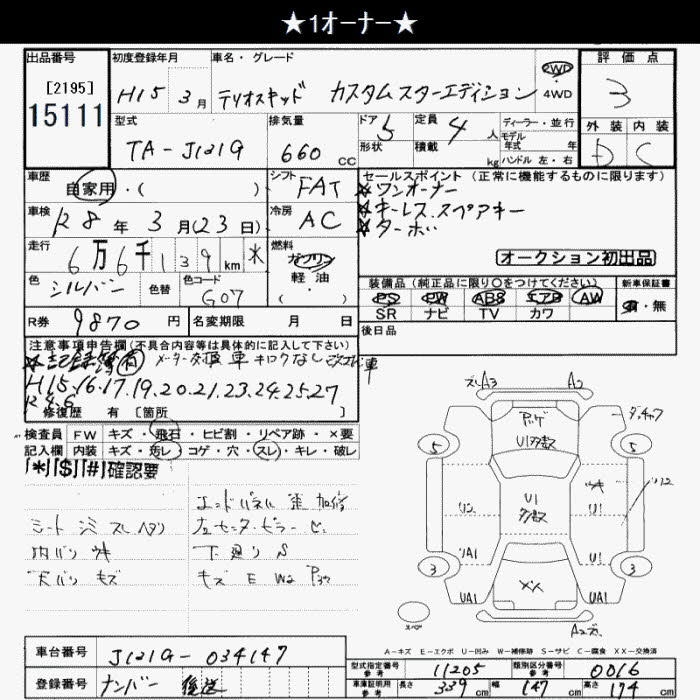 ★1オーナー★
出品番号 初度登録年月 車名・グレード 2WD ・ 4WD 評価点
[2195] 15111 H15年 3月 テリオスキッド カスタムスターエディション 3
型式 排気量 ドア 5 定員 4人 ディーラー・並行 外装 内装
TA-J121G 660 CC 形状 積載 kg モデル年式 年式 ハンドル 左・右 D C
車歴 自家用・( ) シフト FAT セールスポイント(正常に機能するものに限ります)
☆ワンオーナー
車検 R8年3月(23日) 冷房 AC ☆キーレス.スペアキー
☆ターボ
走行 6万6千139km 燃料 ガソリン 軽油 ( ) オークション初出品
色 シルバー 色替 色コード G07 装備品(純正品に限り○をつけてください) 新車保証書
PS PW ABS エアB AW 有・無
SR ナビ TV カワ
R券 9870円 名変期限 月 日 後日品
注意事項申告欄(不具合内容等は具体的に記入して下さい)
☆記録簿(有) メーター交換車 キロクなし
H15.16.17.19.20.21.23.24.25.27
R4.6
修復歴 有 [箇所
検査員 FW キズ・飛石・ヒビ割・リペア跡・×要
記入欄 内装 キズ・汚レ・コゲ・穴・スレ・キレ・破レ
[*][$][#]確認要
エンドパネル 歪 加修
シート シミ スレ ヘタリ 左センターピラー
内バリ ウキ 下廻り S
天バリ キズ キズ E W2
ズレA3 A2
U1多数
5 5
U1
多数
3 3
UA1 XX UA1
A2ズレ
スペア
A-キズ E-エクボ U-凹み W-補修跡 S-サビ C-腐食 XX-交換済
車台番号 J121G-034147
型式指定番号 参考 11205 類別区分番号 参考 0016
登録番号 ナンバー 後送
車庫証明用 参考 長さ 339cm 幅 147cm 高さ 174cm